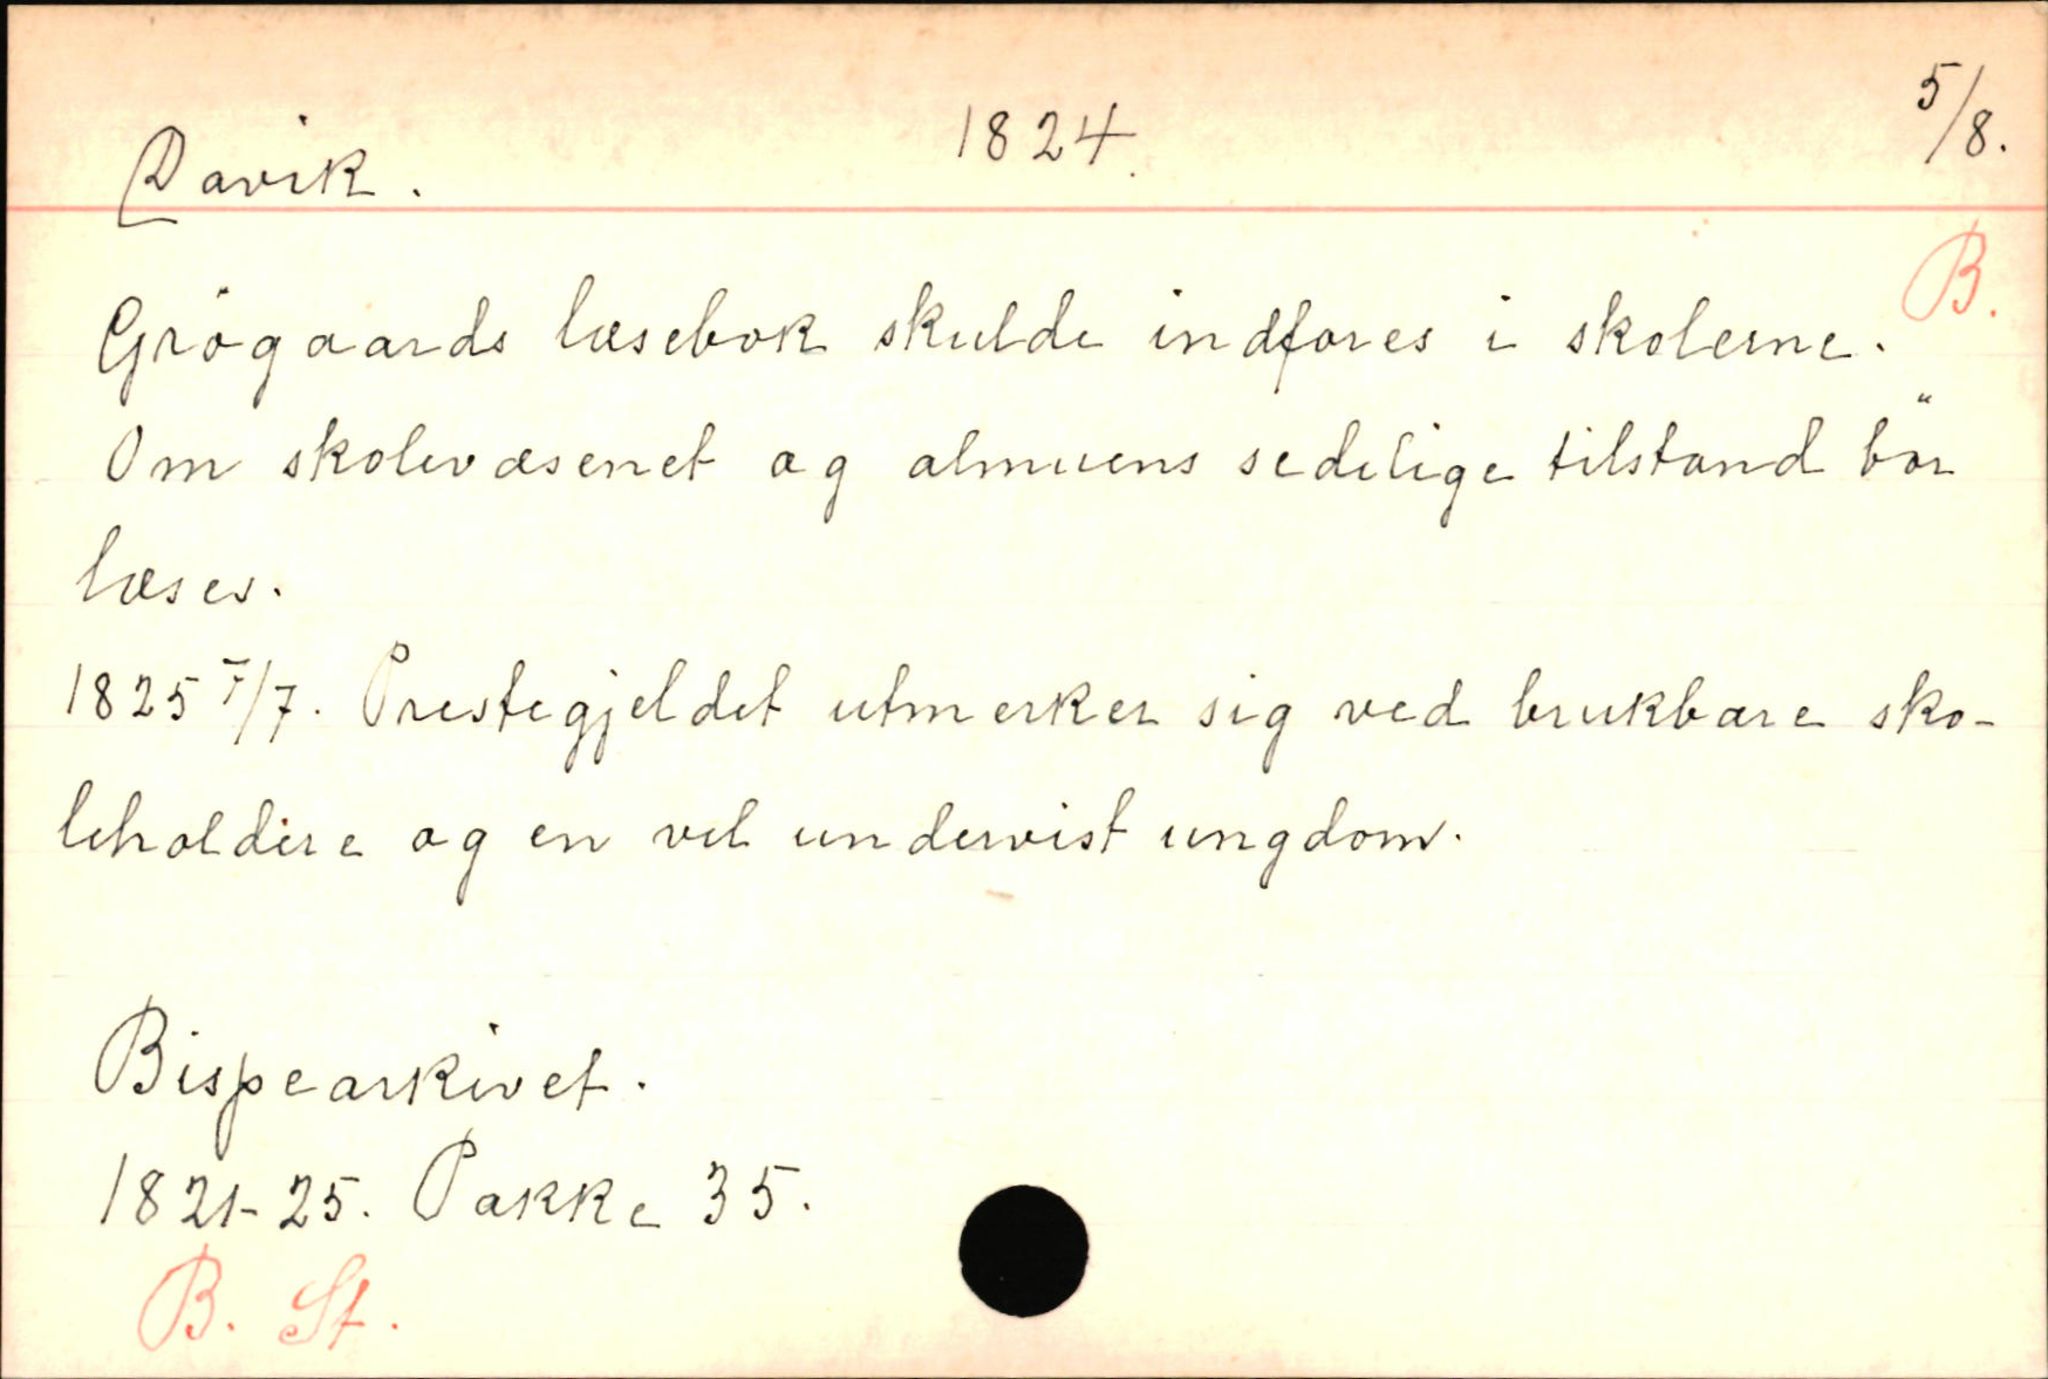 Davik. 1824. 5/8.
B.
Grögaards læsebok skulde indføres i skolerne.
Om skolevæsenet og almuens sedelige tilstand bör
læses.
1825 7/7. Prestegjeldet utmerker sig ved brukbare sko-
leholdere og en vel undervist ungdom.
Bispearkivet.
1821-25. Pakke 35.
B. St.